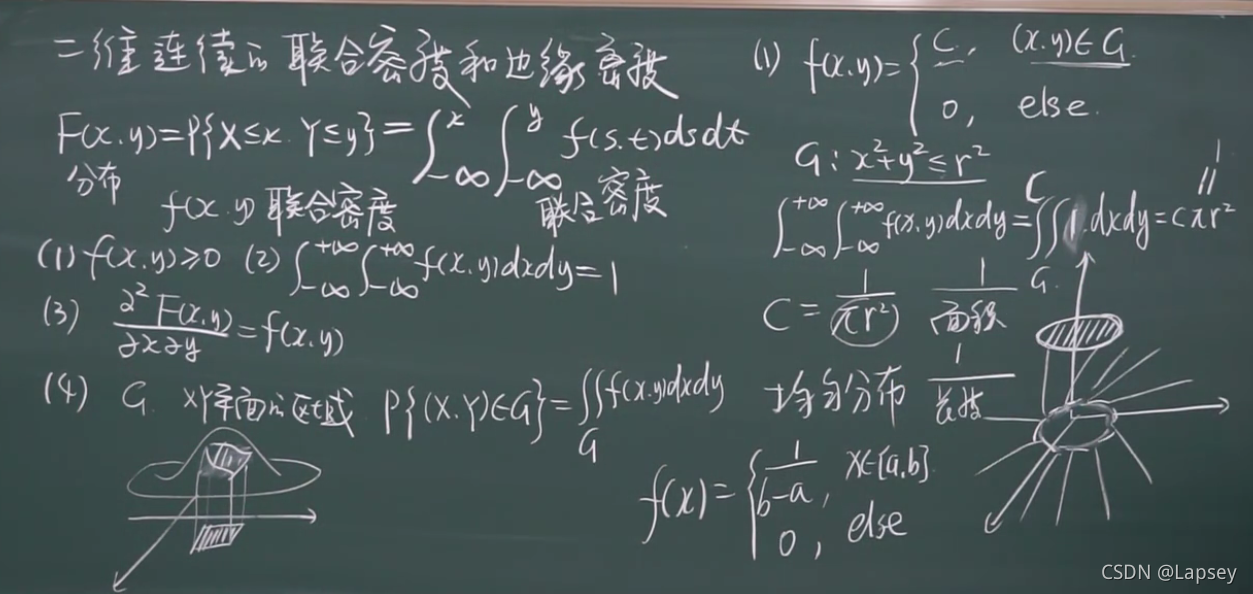 二维连续的联合密度和边缘密度
F(x,y)=P{X≤x, Y≤y}=∫_{-∞}^{x}∫_{-∞}^{y} f(s,t)dsdt
分布
联合密度
f(x,y) 联合密度
(1) f(x,y)≥0 (2) ∫_{-∞}^{+∞}∫_{-∞}^{+∞} f(x,y)dxdy=1
(3) ∂²F(x,y)/∂x∂y=f(x,y)
(4) G. XY平面的区域. P{(X,Y)∈G}=∬_G f(x,y)dxdy
(1) f(x,y)={C, (x,y)∈G
0, else.
G: x²+y²≤r²
1
∥
∫_{-∞}^{+∞}∫_{-∞}^{+∞} f(x,y)dxdy=C∬_G 1 dxdy=Cπr²
C=1/(πr²) 1/面积
均匀分布 1/长度
f(x)={1/(b-a), X∈[a,b]
0, else
CSDN @Lapsey